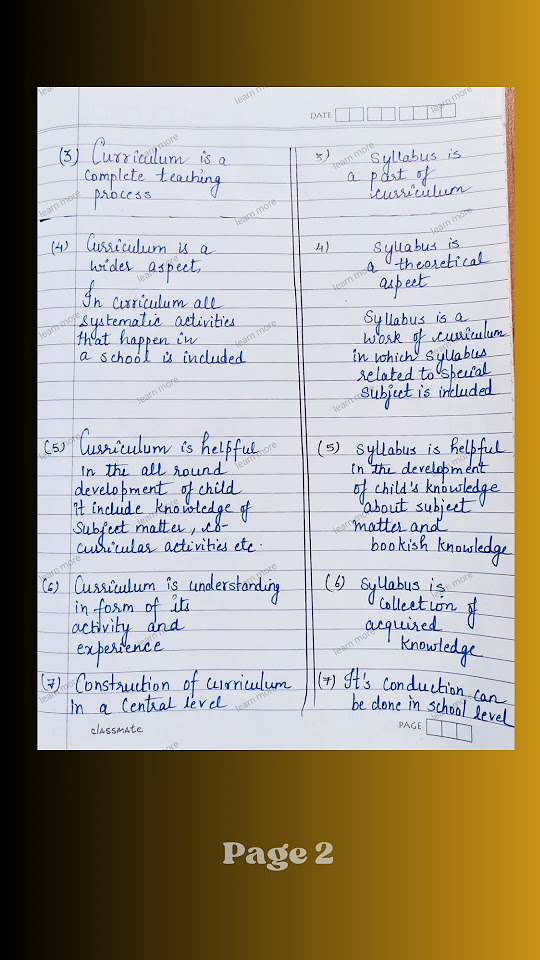 DATE
(3) Curriculum is a
complete teaching
process
3) Syllabus is
a part of
curriculum
(4) Curriculum is a
wider aspect,
In curriculum all
systematic activities
that happen in
a school is included
4) Syllabus is
a theoretical
aspect
Syllabus is a
work of curriculum
in which syllabus
related to special
subject is included
(5) Curriculum is helpful
in the all round
development of child
it include knowledge of
Subject matter, co-
curricular activities etc.
(5) Syllabus is helpful
in the development
of child's knowledge
about subject
matter and
bookish knowledge
(6) Curriculum is understanding
in form of its
activity and
experience
(6) Syllabus is
collection of
acquired
knowledge
(7) Construction of curriculum
in a central level
(7) It's conduction can
be done in school level
classmate
PAGE
learn more
Page 2